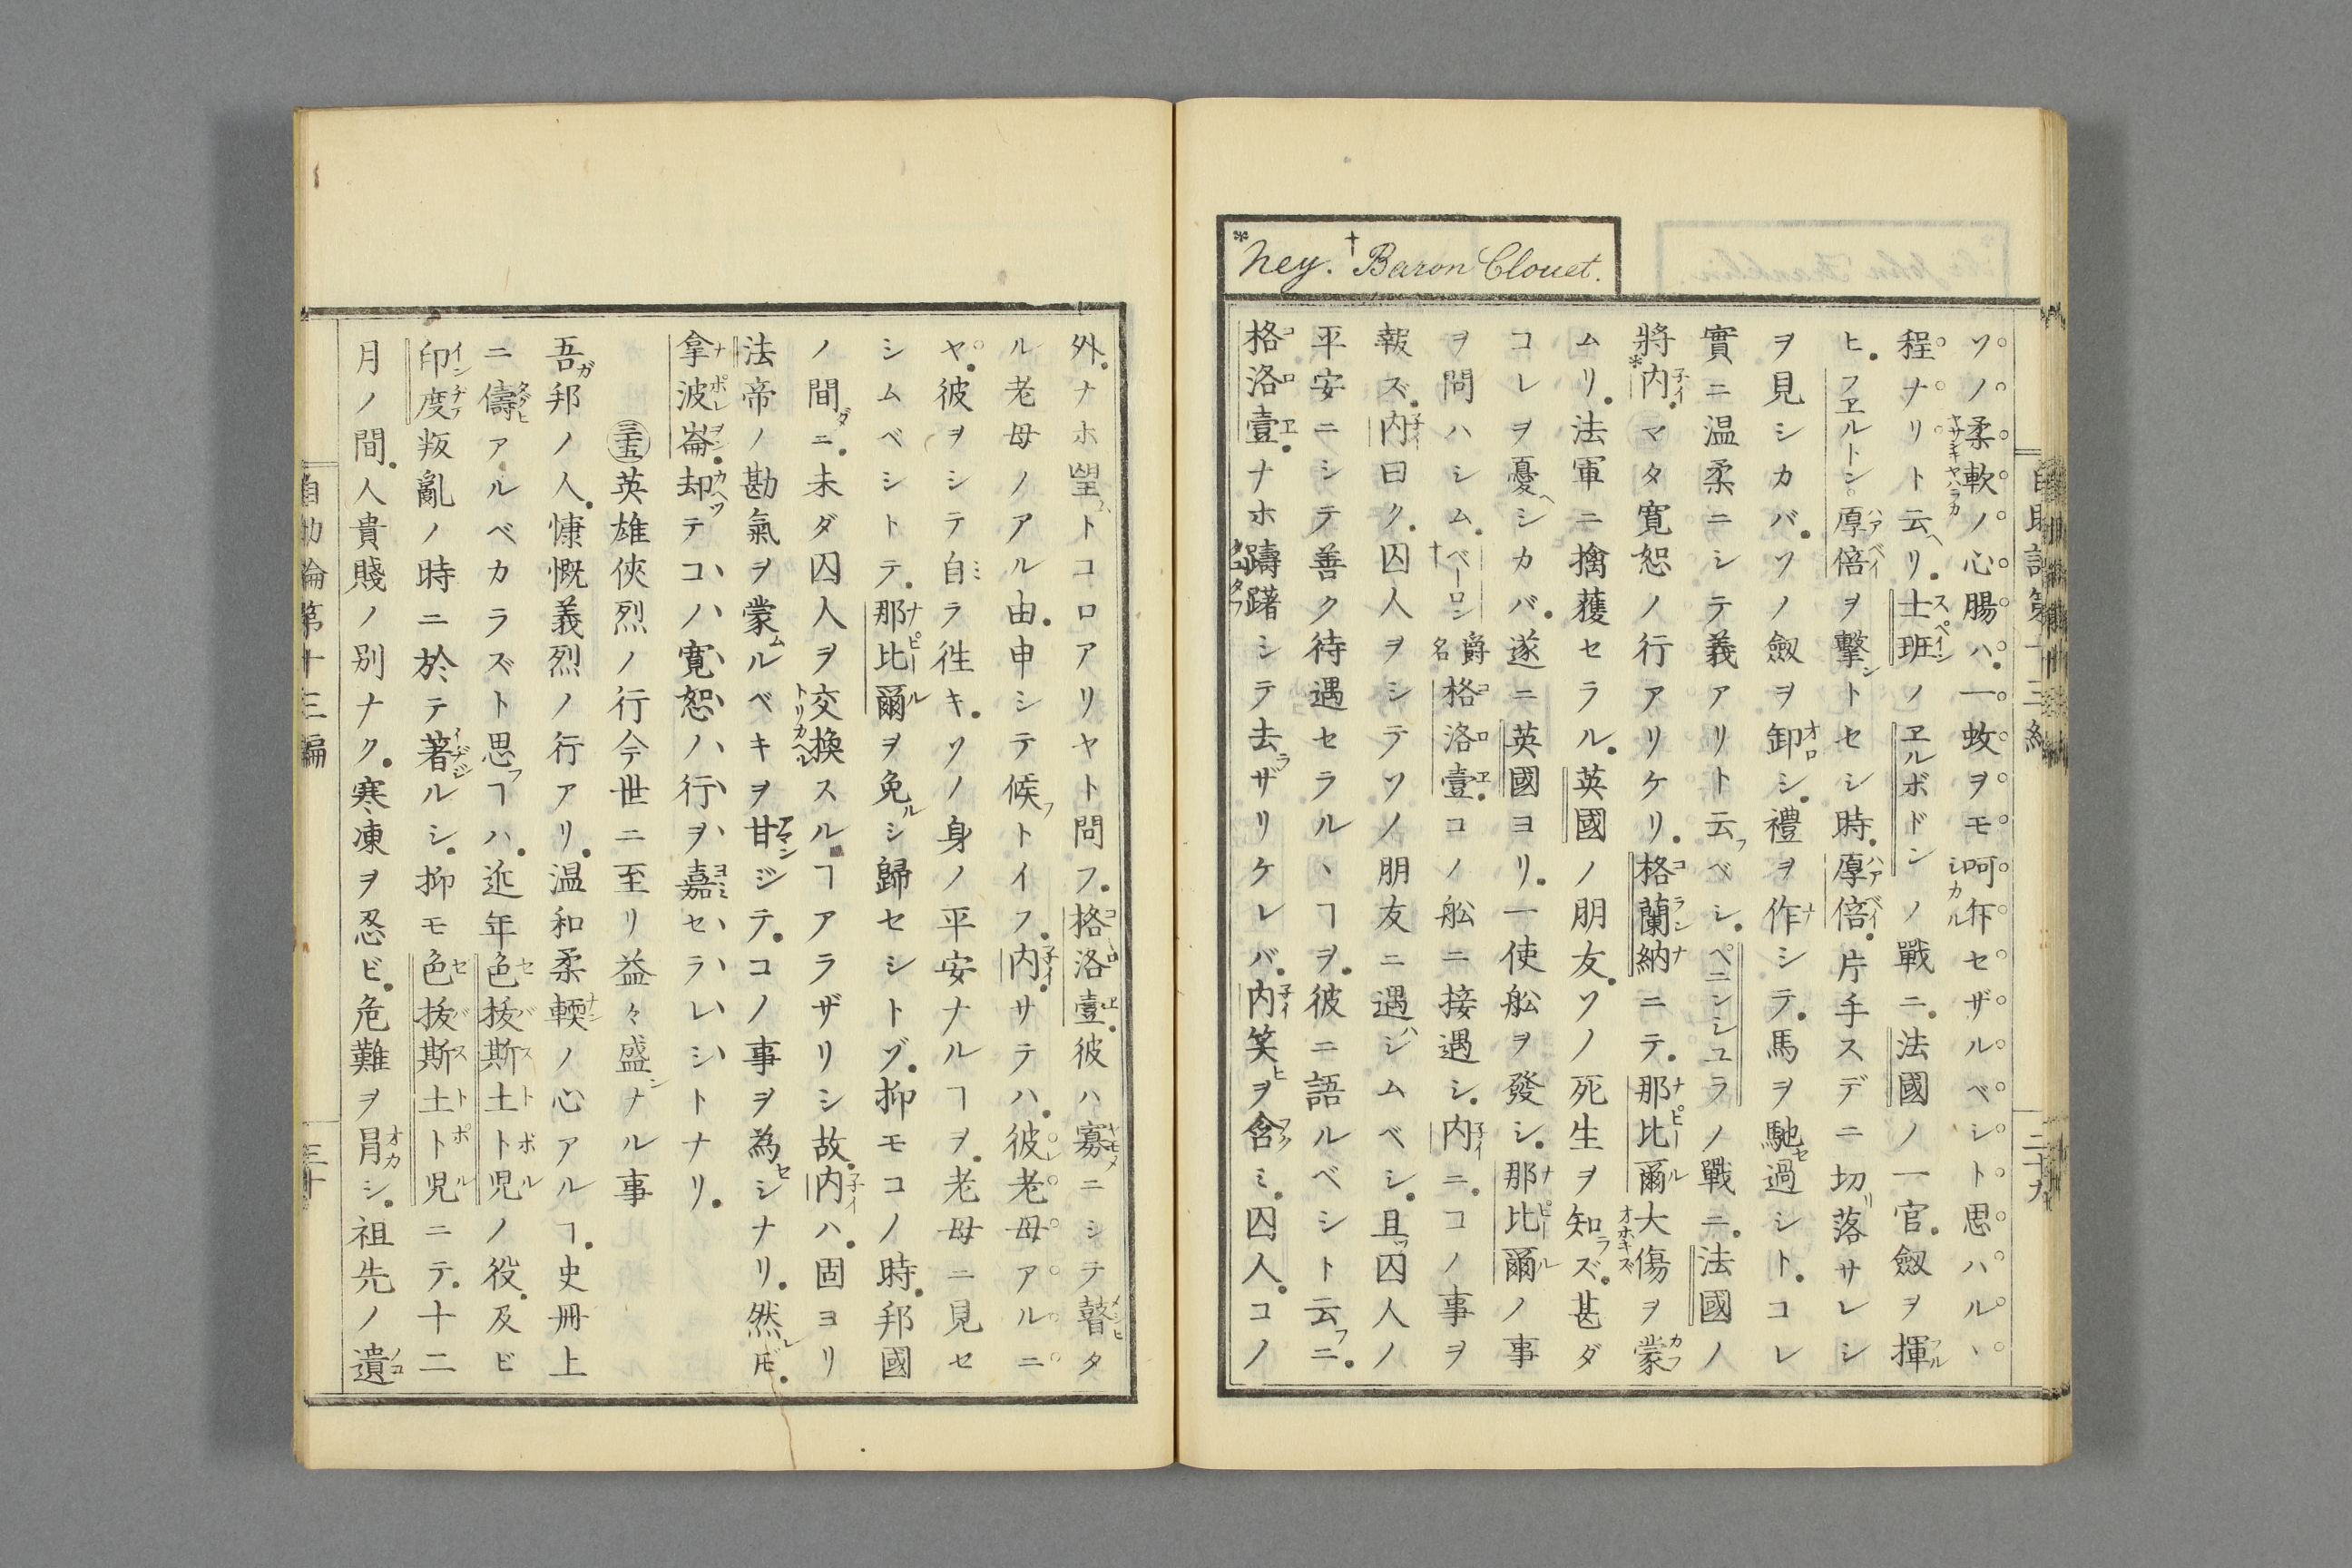 *Ney. †Baron Clouet.
ソノ柔軟ノ心腸ハ一蚊ヲモ呵斥セザルベシト思ハルヽ
程ナリト云ヘリ士班ノヱルボドンノ戰ニ法國ノ一官劔ヲ揮
ヒフヱルトン厚倍ヲ擊ントセシ時厚倍片手スデニ切リ落サレシ
ヲ見シカバソノ劔ヲ卸シ禮ヲ作シテ馬ヲ馳セ過シトコレ
實ニ温柔ニシテ義アリト云フベシペニンシユラノ戰ニ法國ノ
將*内マタ寛恕ノ行アリケリ格蘭納ニテ那比爾大傷ヲ蒙
ムリ法軍ニ擒獲セラル英國ノ朋友ソノ死生ヲ知ラズ甚ダ
コレヲ憂ヘシカバ遂ニ英國ヨリ一使舩ヲ發シ那比爾ノ事
ヲ問ハシム†ベーロン爵名格洛壹コノ舩ニ接遇シ内ニコノ事ヲ
報ズ内曰ク囚人ヲシテソノ朋友ニ遇ハシムベシ且ツ囚人ノ
平安ニシテ善ク待遇セラルヽヿヲ彼ニ語ルベシト云フニ
格洛壹ナホ躊躇シテ去ラザリケレバ内笑ヒヲ含ミ囚人コノ
外ナホ望ムトコロアリヤト問フ格洛壹彼ハ寡ニシテ瞽タ
ル老母ノアル由申シテ候フトイフ内サテハ彼老母アルニ
ヤ彼ヲシテ自ラ徃キソノ身ノ平安ナルヿヲ老母ニ見セ
シムベシトテ那比爾ヲ免ルシ歸セシトゾ抑モコノ時邦國
ノ間ダニ未ダ囚人ヲ交換スルヿアラザリシ故内ハ固ヨリ
法帝ノ勘氣ヲ蒙ムルベキヲ甘ジテコノ事ヲ為セシナリ然レ𪜈
拿波崙却テコノ寛恕ノ行ヲ嘉セラレシトナリ
㉟英雄俠烈ノ行今世ニ至リ益々盛ンナル事
吾ガ邦ノ人慷慨義烈ノ行アリ温和柔輭ノ心アルヿ史冊上
ニ儔アルベカラズト思フヿハ近年色抜斯土ト児ノ役及ビ
印度叛亂ノ時ニ於テ著ルシ抑モ色抜斯土ト児ニテ十二
月ノ間人貴賤ノ別ナク寒凍ヲ忍ビ危難ヲ冐シ祖先ノ遺
自助論第十三編
三十